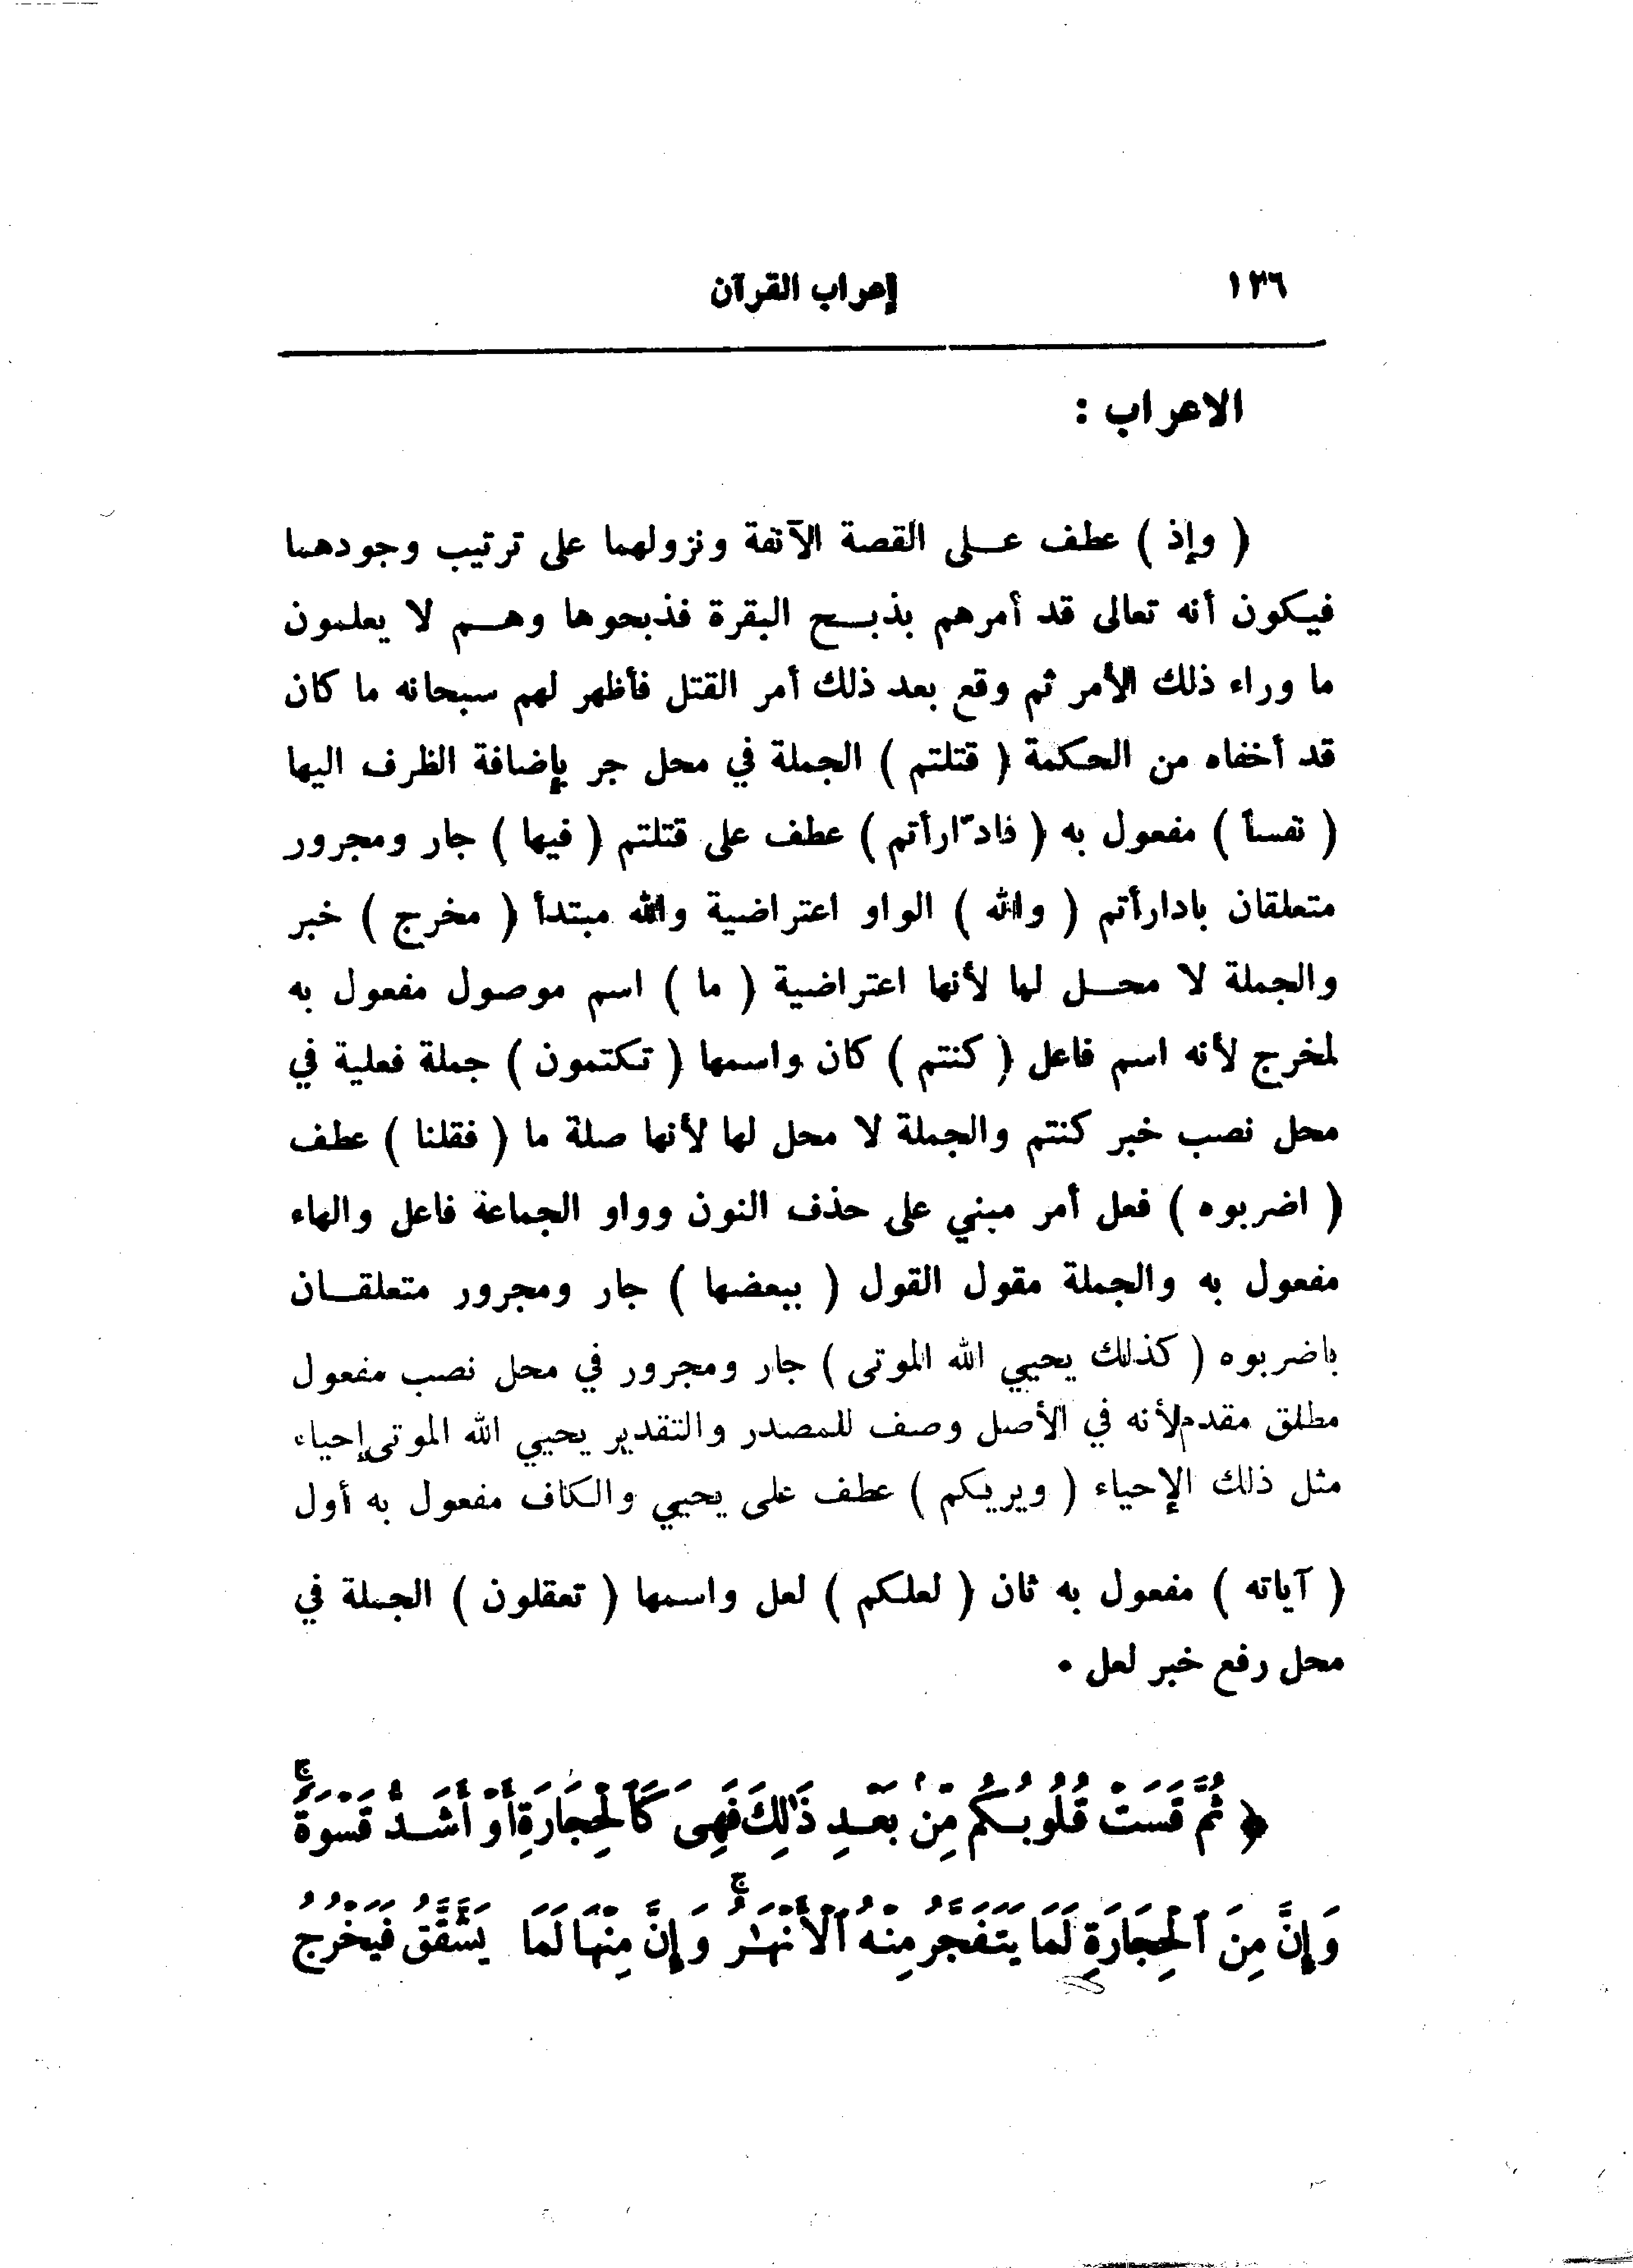 ١٣٦ إعراب القرآن
الاعراب :
( وإذ ) عطف عـلى القصة الآنفة ونزولهما على ترتيب وجودهما
فيكون أنه تعالى قد أمرهم بذبـح البقرة فذبحوها وهـم لا يعلمون
ما وراء ذلك الأمر ثم وقع بعد ذلك أمر القتل فأظهر لهم سبحانه ما كان
قد أخفاه من الحكمة ( قتلتم ) الجملة في محل جر بإضافة الظرف اليها
( نفساً ) مفعول به ( فادّارأتم ) عطف على قتلتم ( فيها ) جار ومجرور
متعلقان بادارأتم ( والله ) الواو اعتراضية والله مبتدأ ( مخرج ) خبر
والجملة لا محـل لها لأنها اعتراضية ( ما ) اسم موصول مفعول به
لمخرج لأنه اسم فاعل ( كنتم ) كان واسمها ( تكتمون ) جملة فعلية في
محل نصب خبر كنتم والجملة لا محل لها لأنها صلة ما ( فقلنا ) عطف
( اضربوه ) فعل أمر مبني على حذف النون وواو الجماعة فاعل والهاء
مفعول به والجملة مقول القول ( ببعضها ) جار ومجرور متعلقـان
باضربوه ( كذلك يحيي الله الموتى ) جار ومجرور في محل نصب مفعول
مطلق مقدم لأنه في الأصل وصف للمصدر والتقدير يحيي الله الموتى إحياء
مثل ذلك الإحياء ( ويريكم ) عطف على يحيي والكاف مفعول به أول
( آياته ) مفعول به ثان ( لعلكم ) لعل واسمها ( تعقلون ) الجملة في
محل رفع خبر لعل .
﴿ ثُمَّ قَسَتْ قُلُوبُكُم مِّنْ بَعْدِ ذَٰلِكَ فَهِىَ كَٱلْحِجَارَةِ أَوْ أَشَدُّ قَسْوَةً ۚ
وَإِنَّ مِنَ ٱلْحِجَارَةِ لَمَا يَتَفَجَّرُ مِنْهُ ٱلْأَنْهَٰرُ ۚ وَإِنَّ مِنْهَا لَمَا يَشَّقَّقُ فَيَخْرُجُ